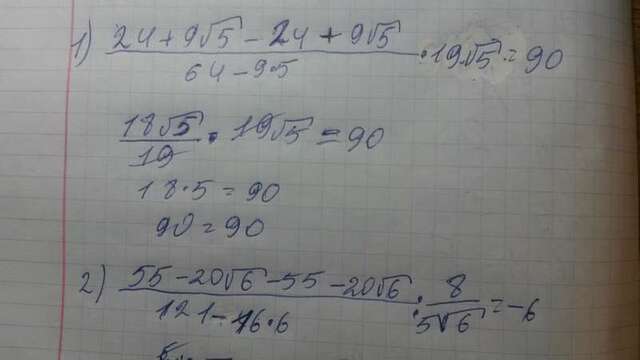 1) (24+9√5 - 24+9√5)/(64-9·5) · 19√5 = 90
18√5/19 · 19√5 = 90
18·5 = 90
90 = 90
2) (55-20√6-55-20√6)/(121-16·6) : 8/(5√6) = -6